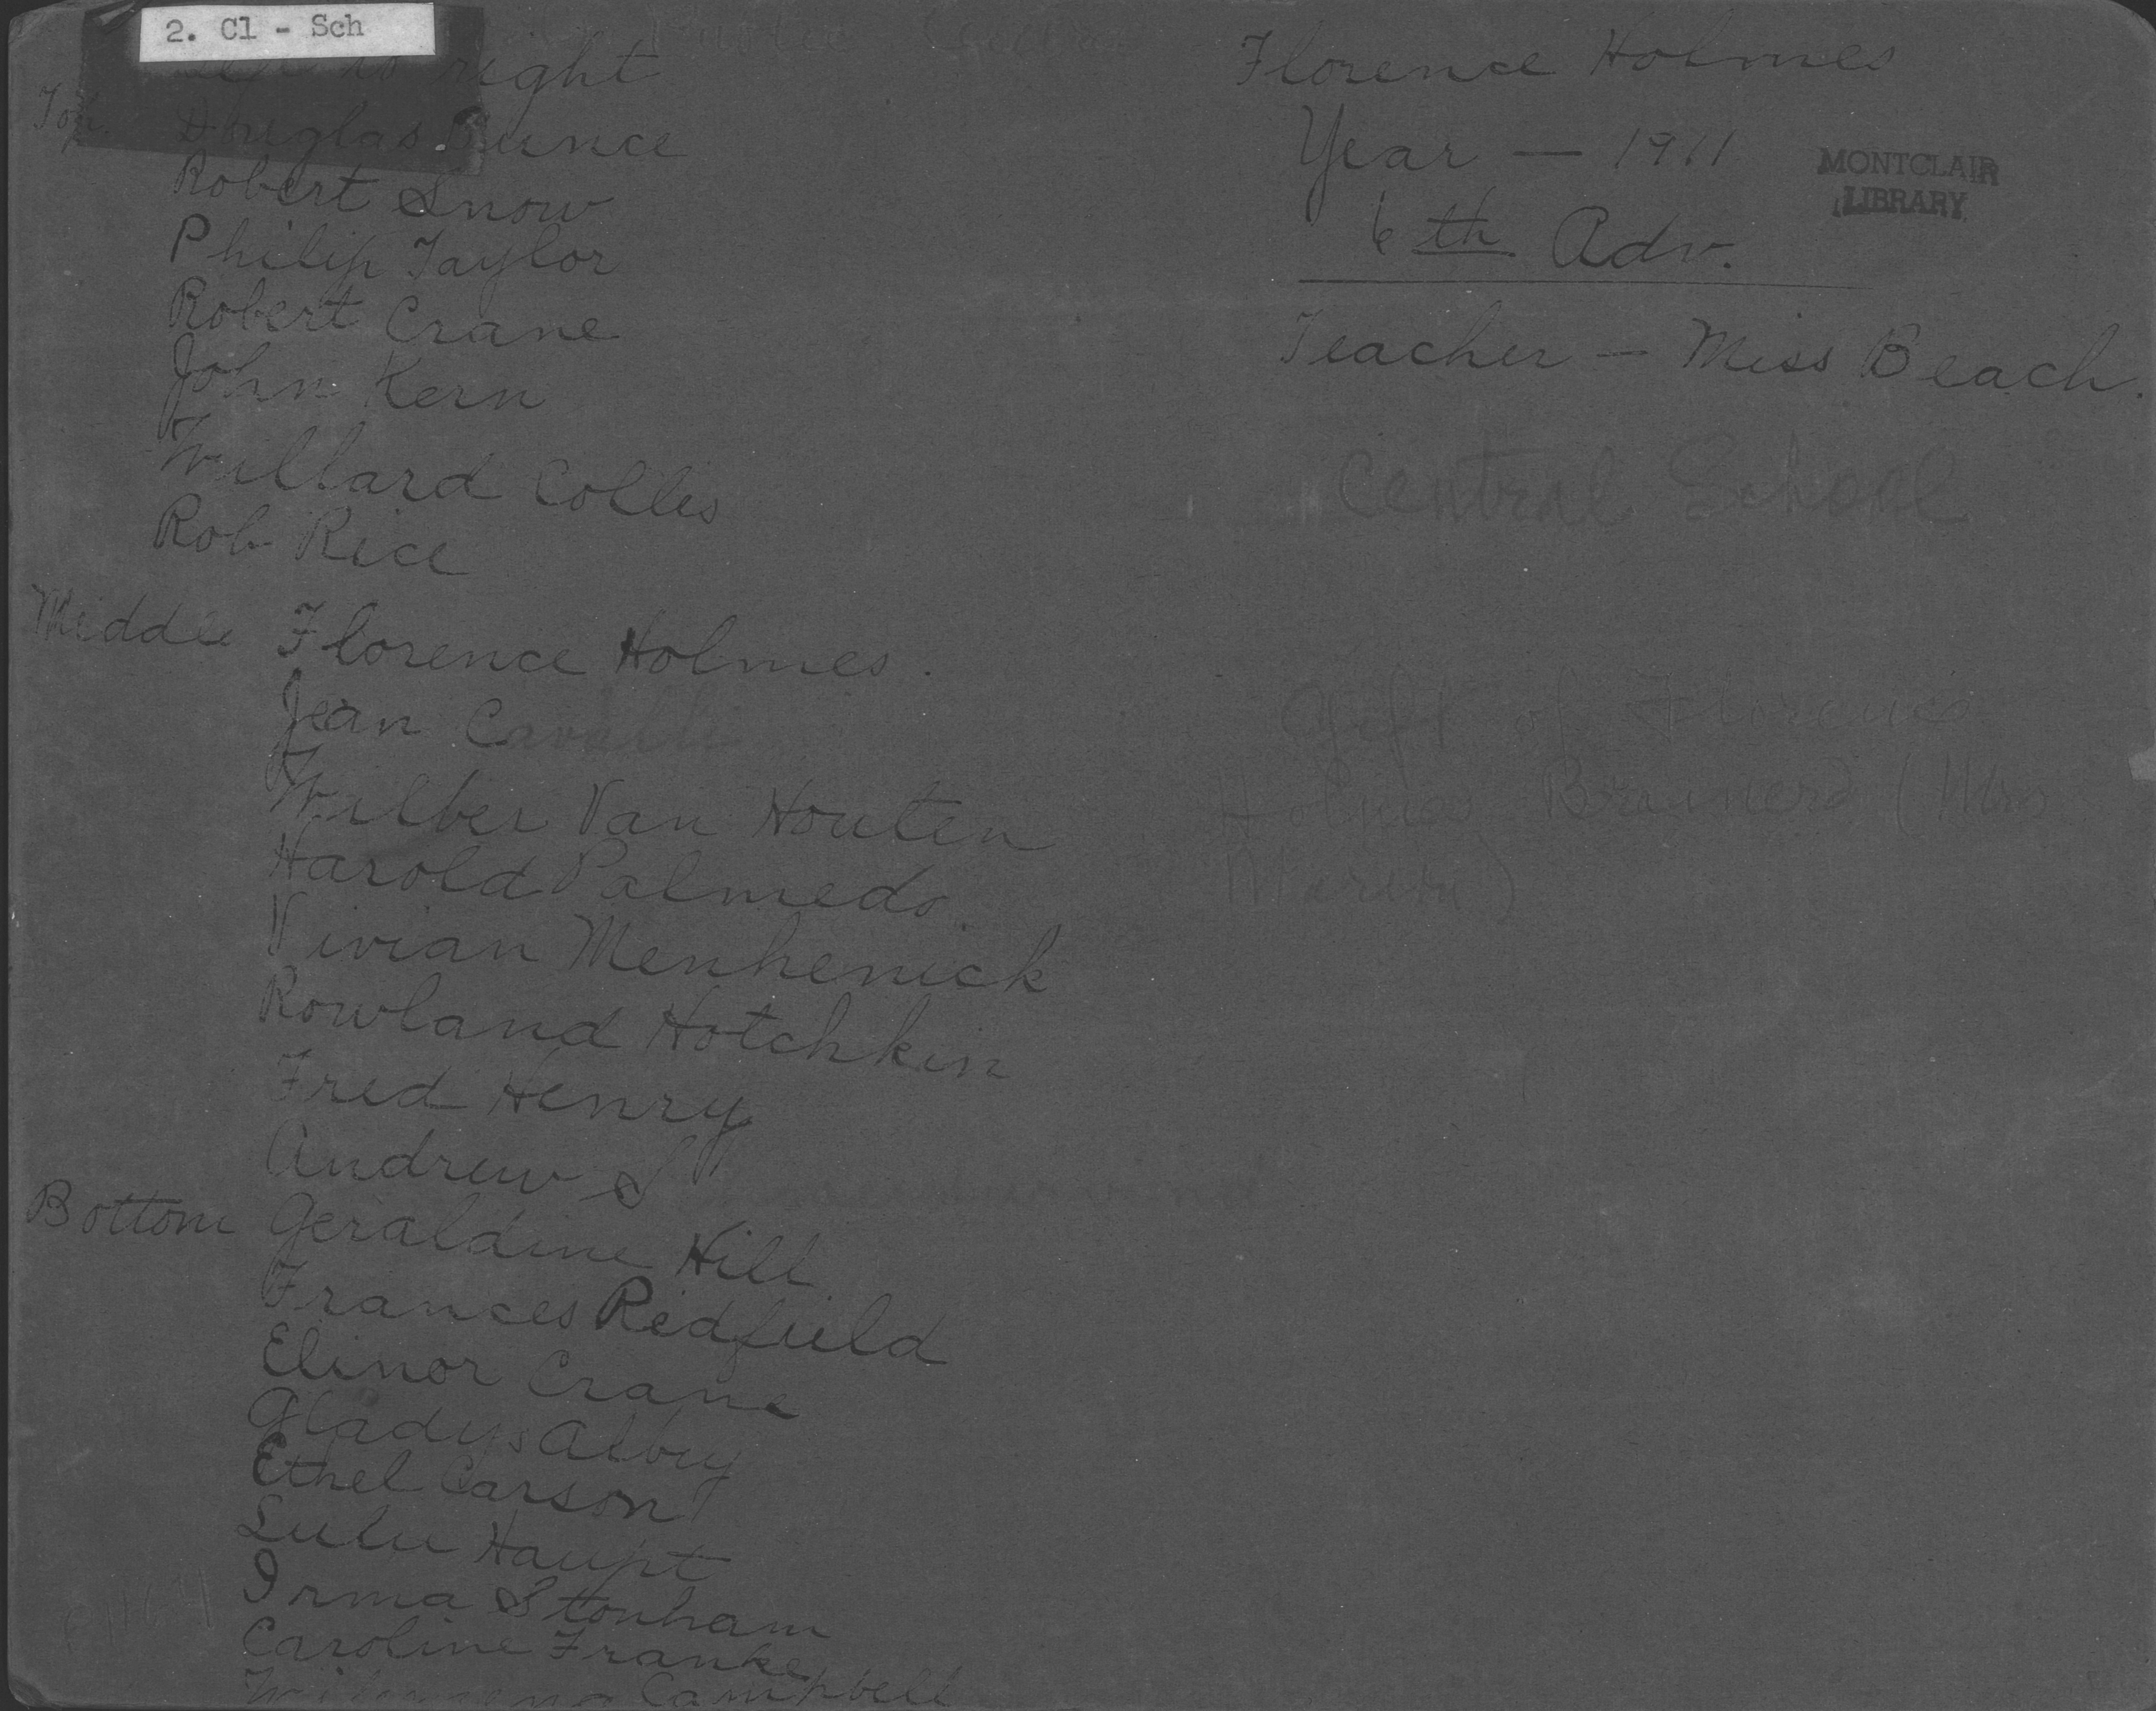 2. Cl - Sch
left to right
Top. Douglas Bunce
Robert Snow
Philip Taylor
Robert Crane
John Kern
Willard Colles
Rob Rice
Middle Florence Holmes.
Jean
Wilber Van Houten
Harold Palmedo.
Vivian Menhenick
Rowland Hotchkin
Fred Henry
Andrew S
Bottom Geraldine Hill
Frances Redfield
Elinor Crane
Gladys Albey
Ethel Carson
Lulu Haupt
Irma Stonham
Caroline Franke
Campbell
Florence Holmes
Year — 1911
6th Adv.
MONTCLAIR
LIBRARY
Teacher — Miss Beach.
Central School
Gift of Florence
Holmes Brainerd (Mrs